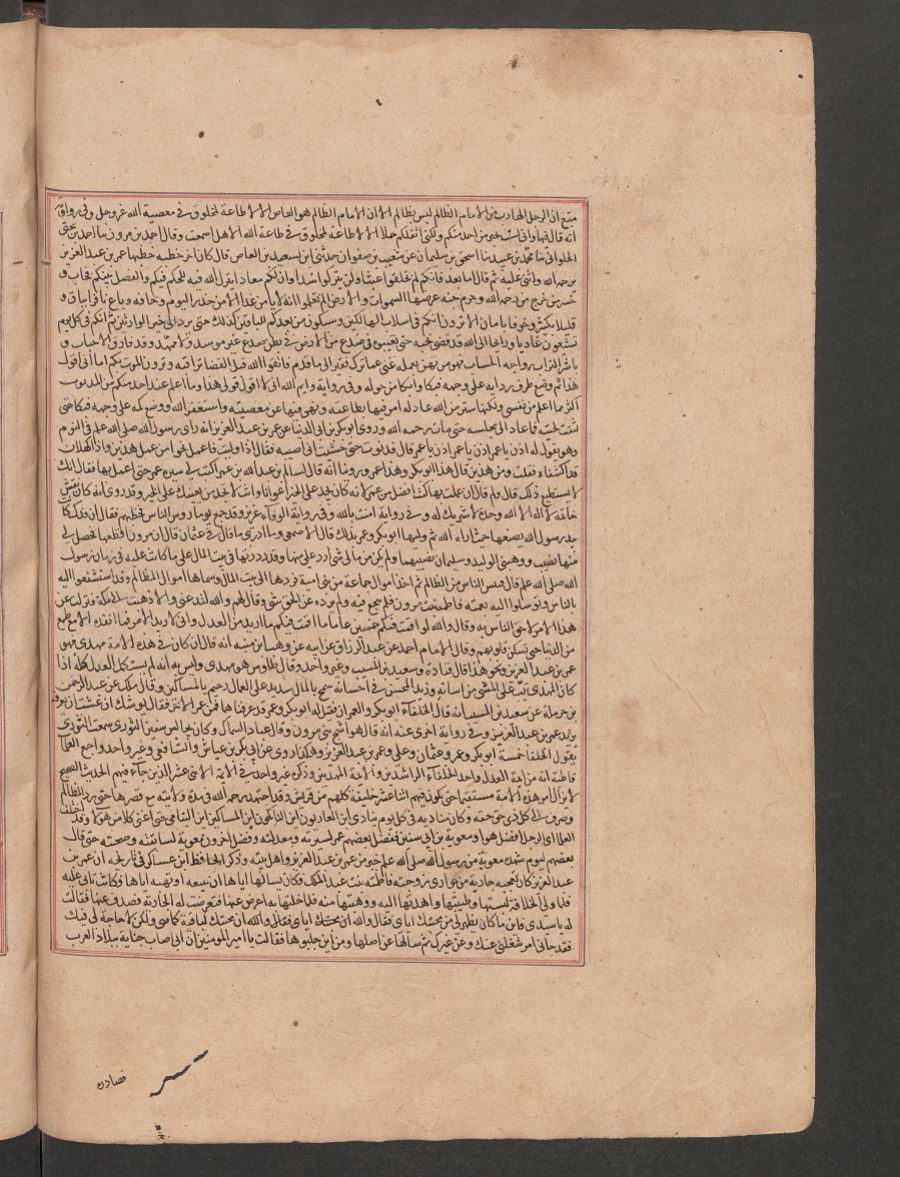 متبع ان الرجل الهارب من الامام الظالم ليس بظالم الا ان الامام الظالم هو العاصى الا لا طاعة لمخلوق فى معصية الله عز وجل وفى رواية
انه قال فيها وانى لست بخير من احد منكم ولكنى اثقلكم حملا الا لا طاعة لمخلوق فى طاعة الله الا هل اسمعت وقال احمد بن مرون ثنا احمد بن يحيى
الحلوانى ثنا محمد بن عبيد ثنا اسحق بن سليمان عن شعيب بن صفوان حدثنى ابن لسعيد بن العاص قال كان اخر خطبة خطبها عمر بن عبد العزيز
رحمه الله واثنى عليه ثم قال اما بعد فانكم لم تخلقوا عبثا ولن تتركوا سدا وان لكم معادا ينزل الله فيه للحكم فيكم والفصل بينكم فخاب و
خسر من خرج من رحمة الله وحرم جنة عرضها السموات والارض الم تعلموا انه لا يامن غدا الا من حذر اليوم وخافه وباع نافيا بباق و
قليلا بكثير وخوفا بامان الا ترون انكم فى اسلاب الهالكين وسيكون من بعدكم للباقين كذلك حتى يرد الى خير الوارثين ثم انكم فى كل يوم
تشيعون غاديا ورايحا الى الله قد قضى نحبه حتى تغيبوه فى صدع من الارض فى بطن صدع غير موسد ولا ممهد وقد فارق الاحباب و
باشر التراب وواجه الحساب فهو مرتهن بعمله غنى عما ترك فقير الى ما قدم فاتقوا الله قبل القضا تراقبه ونزول الموت بكم اما انى اقول
هذا ثم وضع طرف ردايه على وجهه فبكا وابكا من حوله وفى رواية وايم الله انى لا اقول قولى هذا وما اعلم عند احد منكم من الذنوب
اكثر ما اعلم من نفسى ولكنها سنن من الله عادلة امر فيها بطاعته ونهى فيها عن معصيته واستغفر الله ووضع كمه على وجهه فبكا حتى
بلت لحيته فما عاد الى مجلسه حتى مات رحمه الله وروى ابو بكر بن ابى الدنيا عن عمر بن عبد العزيز انه راى رسول الله صلى الله علم فى النوم
وهو يقول له ادن يا عمر ادن يا عمر ادن يا عمر قال فدنوت حتى خشيت ان اصيبه فقال اذا وليت فاعمل نحوا من عمل هذين واذا كهلان
قد اكتنفاه فقلت ومن هذين قال هذا ابو بكر وهذا عمر وروينا انه قال لسالم بن عبد الله بن عمر اكتب لى سيرة عمر حتى اعمل بها فقال انك
لا تستطيع ذلك قال ولم قال ان عملت بها كنت افضل من عمر لانه كان يجد على الخير اعوانا وانت لا تجد من يعينك على الخير وقد روى انه كان نقش
خاتمه لا اله الا الله وحده لا شريك له وفى رواية امنت بالله وفى رواية الوفاء عزيز وقد جمع يوما روس الناس فخطبهم فقال ان فدك كانت
بيد رسول الله يضعها حيث اراه الله ثم وليها ابو بكر وعمر كذلك قال الاصمعى وما ادرى ما قال فى عثمان قال ان مرون اقتطعها فحصل لى
منها نصيب ووهبنى الوليد وسليمان نصيبهما ولم يكن من مالى شى ارد على منها وقد رددتها فى بيت المال على ما كانت عليه فى زمان رسول
الله صلى الله علم قال فيئس الناس من الظالم ثم اخذ اموال جماعة من بنى امية فردها الى بيت المال وسماها اموال المظالم وقد استشفعوا اليه
بالناس وتوسلوا اليه بعمته فاطمة بنت مرون فلم ينجع فيه ولم يرده عن الحق شى وقال لهم والله لتدعنى والا ذهبت الى مكة فنزلت عن
هذا الامر لاحق الناس به وقال والله لو اقمت فيكم خمسين عاما ما اقمت فيكم ما اريد من العدل وانى لاريد الامر فما انفذه الا مع طمع
من الدنيا حتى تسكن قلوبهم وقال الامام احمد عن عبد الرزاق عن ابيه عن وهب بن منبه انه قال ان كان فى هذه الامة مهدى فهو
عمر بن عبد العزيز ونحو هذا قال قتادة وسعيد بن المسيب وغير واحد وقال طاوس هو مهدى وليس به انه لم يستكمل العدل كله اذا
كان المهدى تيب على المسى من اسائه وزيد المحسن فى احسانه سمح بالمال شديد على العمال رحيم بالمساكين وقال ملك عن عبد الرحمن
بن حرملة عن سعيد بن المسيب انه قال الخلفاء ابو بكر والعمران فقيل له ابو بكر وعمر قد عرفناهما فمن عمر الاخر فقال يوشك ان عشت ان تعرفه
يريد عمر بن عبد العزيز وفى رواية اخرى عنه انه قال هو اشج بنى مرون وقال عباد السماك وكان يجالس سفين الثورى سمعت الثورى
يقول الخلفا خمسة ابو بكر وعمر وعثمان وعلى وعمر بن عبد العزيز وهكذا روى عن ابى بكر بن عياش والشافعى وغير واحد واجمع العلما
قاطبة انه من ايمة العدل واحد الخلفاء الراشدين والايمة المهديين وذكره غير واحد فى الايمة الاثنى عشر الذين جاء فيهم الحديث الصحيح
لا يزال امر هذه الامة مستقيما حتى يكون فيهم اثنا عشر خليفة كلهم من قريش وقد اجتهد رحمه الله فى مدة ولايته مع قصرها حتى رد المظالم
وصرف الى كل ذى حق حقه وكان مناديه فى كل يوم ينادى اين الغارمون اين الناكحون اين المساكين اين اليتامى حتى اغنى كلا من هولاء وقد اختلف
العلما اى الرجل افضل هو او معوية بن ابى سفين ففضل بعضهم عمر لسيرته ومعدلته وفضل اخرون معوية لسابقته وصحبته حتى قال
بعضهم ليوم شهده معوية من رسول الله صلى الله علم خير من عمر بن عبد العزيز واهل بيته وذكر الحافظ ابن عساكر فى تاريخه ان عمر بن
عبد العزيز كان يعجبه جارية من جوارى زوجته فاطمة بنت عبد الملك فكان يسالها اياها ان تبيعه او تهبه اياها فكانت تابى عليه
فلما ولى الخلافة البستها وطيبتها واهدتها اليه ووهبتها منه فلما اخلتها به اعرض عنها فتعرضت له الجارية فصدف عنها فقالت
له يا سيدى فاين ما كان يظهر لى من محبتك اياى فقال والله ان محبتك لباقية كما هى ولكن لا حاجة لى فيك
فقد جانى امر شغلنى عنك وعن غيرك ثم سالها عن اصلها ومن اين جلبوها فقالت يا امير المومنين ان ابى اصاب جناية ببلاد العرب
فصادن